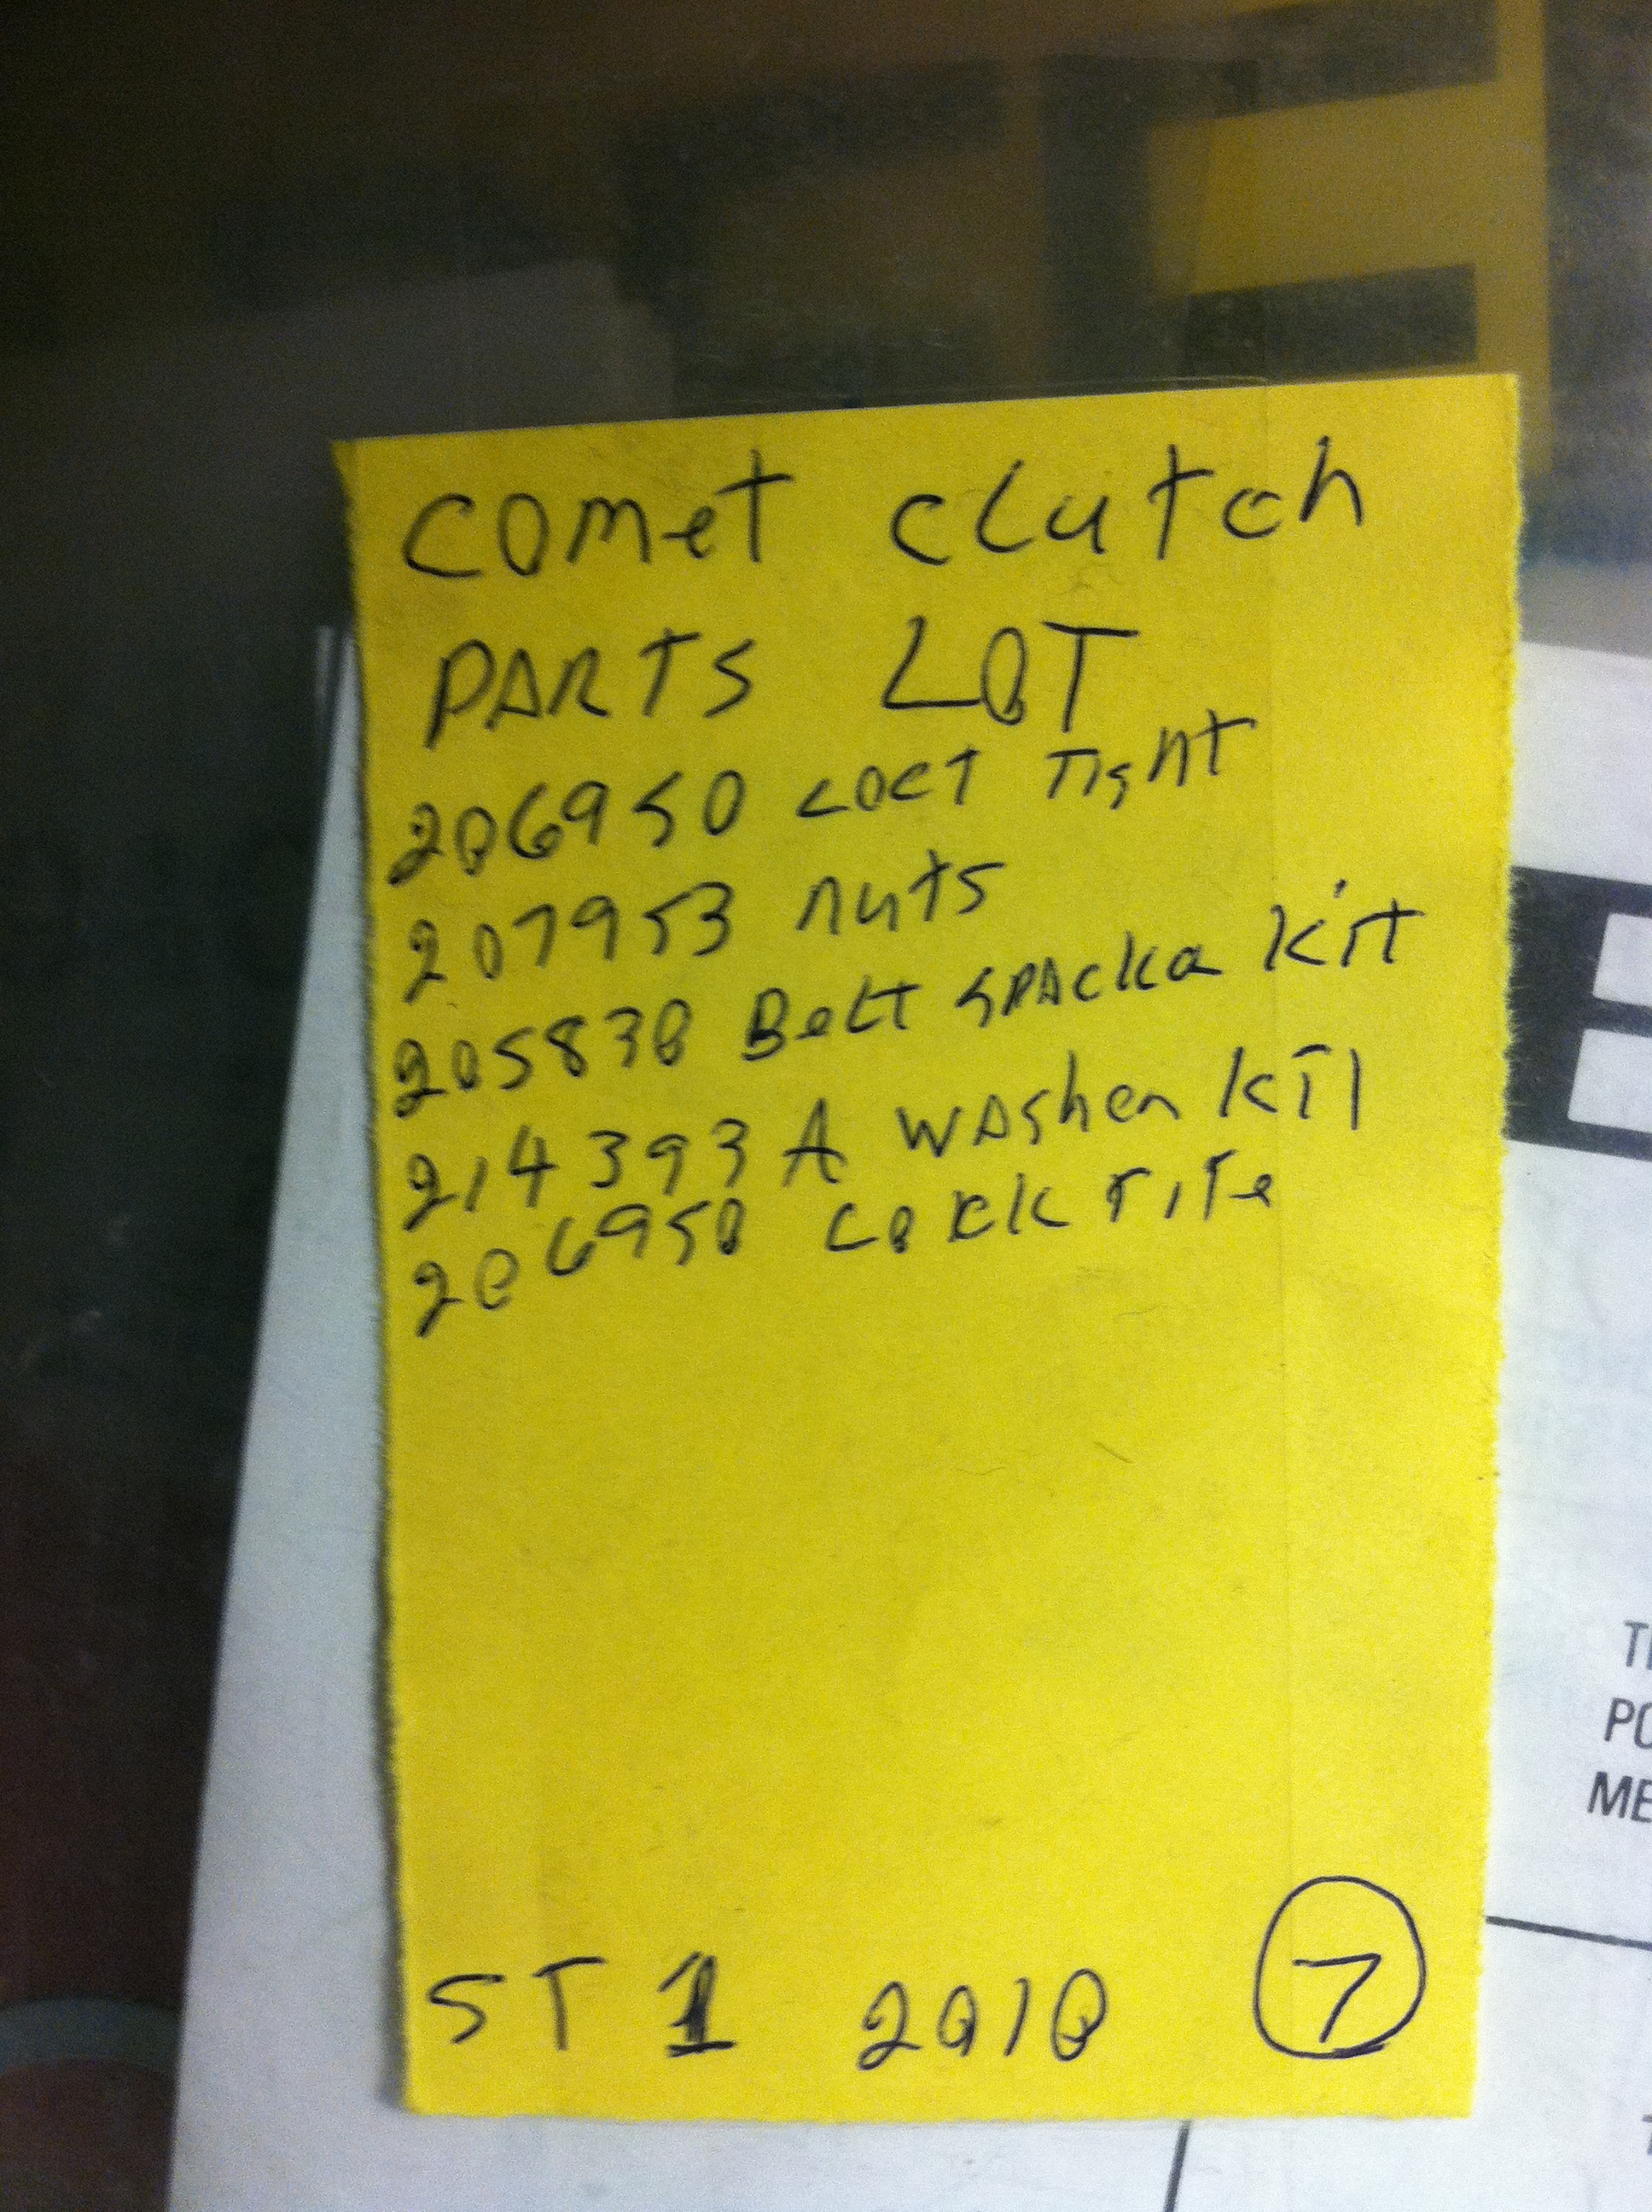 comet clutch
PARTS LOT
206950 LOCT Tight
207953 nuts
205830 Belt SPAcka kit
214393 A WAsher kit
206950 Lock Tite
ST 1 2010 7
PO
ME